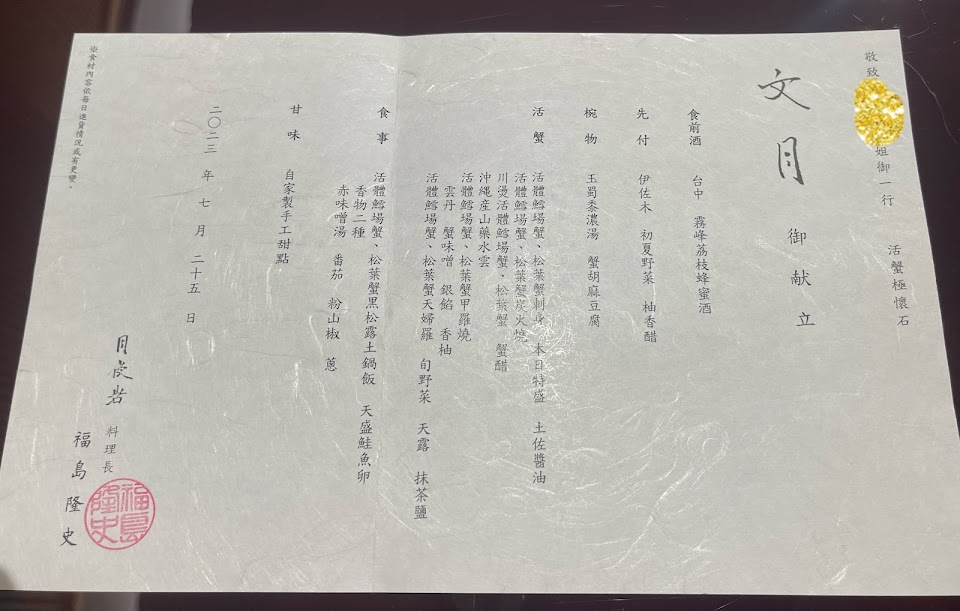 敬致
姐御一行
活蟹極懷石
文月 御献立
食前酒 台中 霧峰荔枝蜂蜜酒
先付 伊佐木 初夏野菜 柚香醋
椀物 玉蜀黍濃湯 蟹胡麻豆腐
活蟹 活體鱈場蟹、松葉蟹刺身 本日特盛 土佐醬油
活體鱈場蟹、松葉蟹炭火燒
川燙活體鱈場蟹、松葉蟹 蟹醋
沖縄産山藥水雲
活體鱈場蟹、松葉蟹甲羅燒
雲丹 蟹味噌 銀餡 香柚
活體鱈場蟹、松葉蟹天婦羅 旬野菜 天露 抹茶鹽
食事 活體鱈場蟹、松葉蟹黑松露土鍋飯 天盛鮭魚卵
香物二種
赤味噌湯 番茄 粉山椒 蔥
甘味 自家製手工甜點
二〇二三年七月二十五日
料理長
福島隆史
福島隆史
依每日進貨情況或有更變。